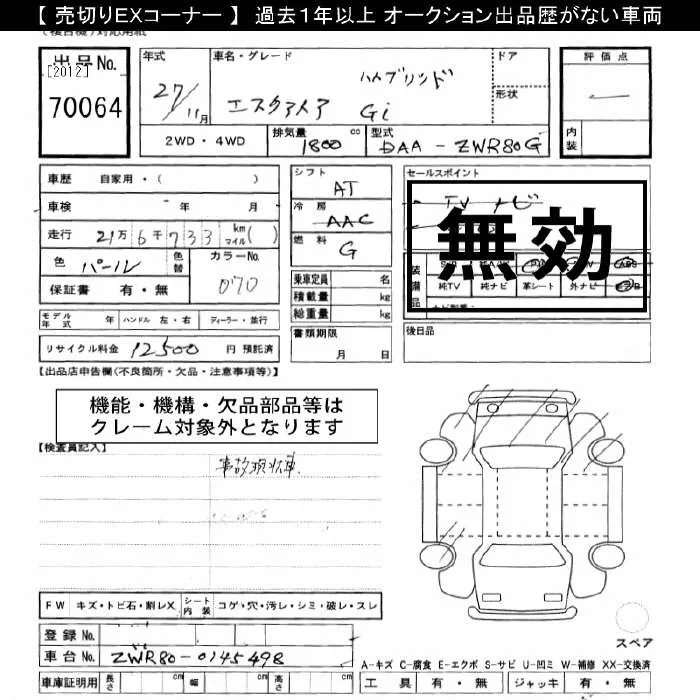 【 売切りEXコーナー 】 過去1年以上 オークション出品歴がない車両
出品No.
[2012]
70064
年式
27/11月
車名・グレード
ハイブリッド
エスクァイア Gi
ドア
形状
評価点
―
内装
2WD・4WD
排気量 1800 cc
型式 DAA-ZWR80G
車歴 自家用・( )
車検 年 月
走行 21万6千733 km マイル( )
色 パール 色替
カラーNo. 070
保証書 有・無
モデル年式 年 ハンドル 左・右 ディーラー・並行
リサイクル料金 12500 円 預託済
シフト AT
冷房 AAC
燃料 G
乗車定員 名
積載量 kg
総重量 kg
書類期限
月 日
セールスポイント
TV ナビ
無効
純TV 純ナビ 革シート 外ナビ
後日品
【出品店申告欄(不良箇所・欠品・注意事項等)】
機能・機構・欠品部品等は
クレーム対象外となります
【検査員記入】
事故現状車
FW キズ・トビ石・割レX シート内装 コゲ・穴・汚レ・シミ・破レ・スレ
登録No.
車台No. ZWR80-0145498
車庫証明用 長さ cm 幅 cm 高さ cm
スペア
A-キズ C-腐食 E-エクボ S-サビ U-凹ミ W-補修 XX-交換済
工具 有・無 ジャッキ 有・無